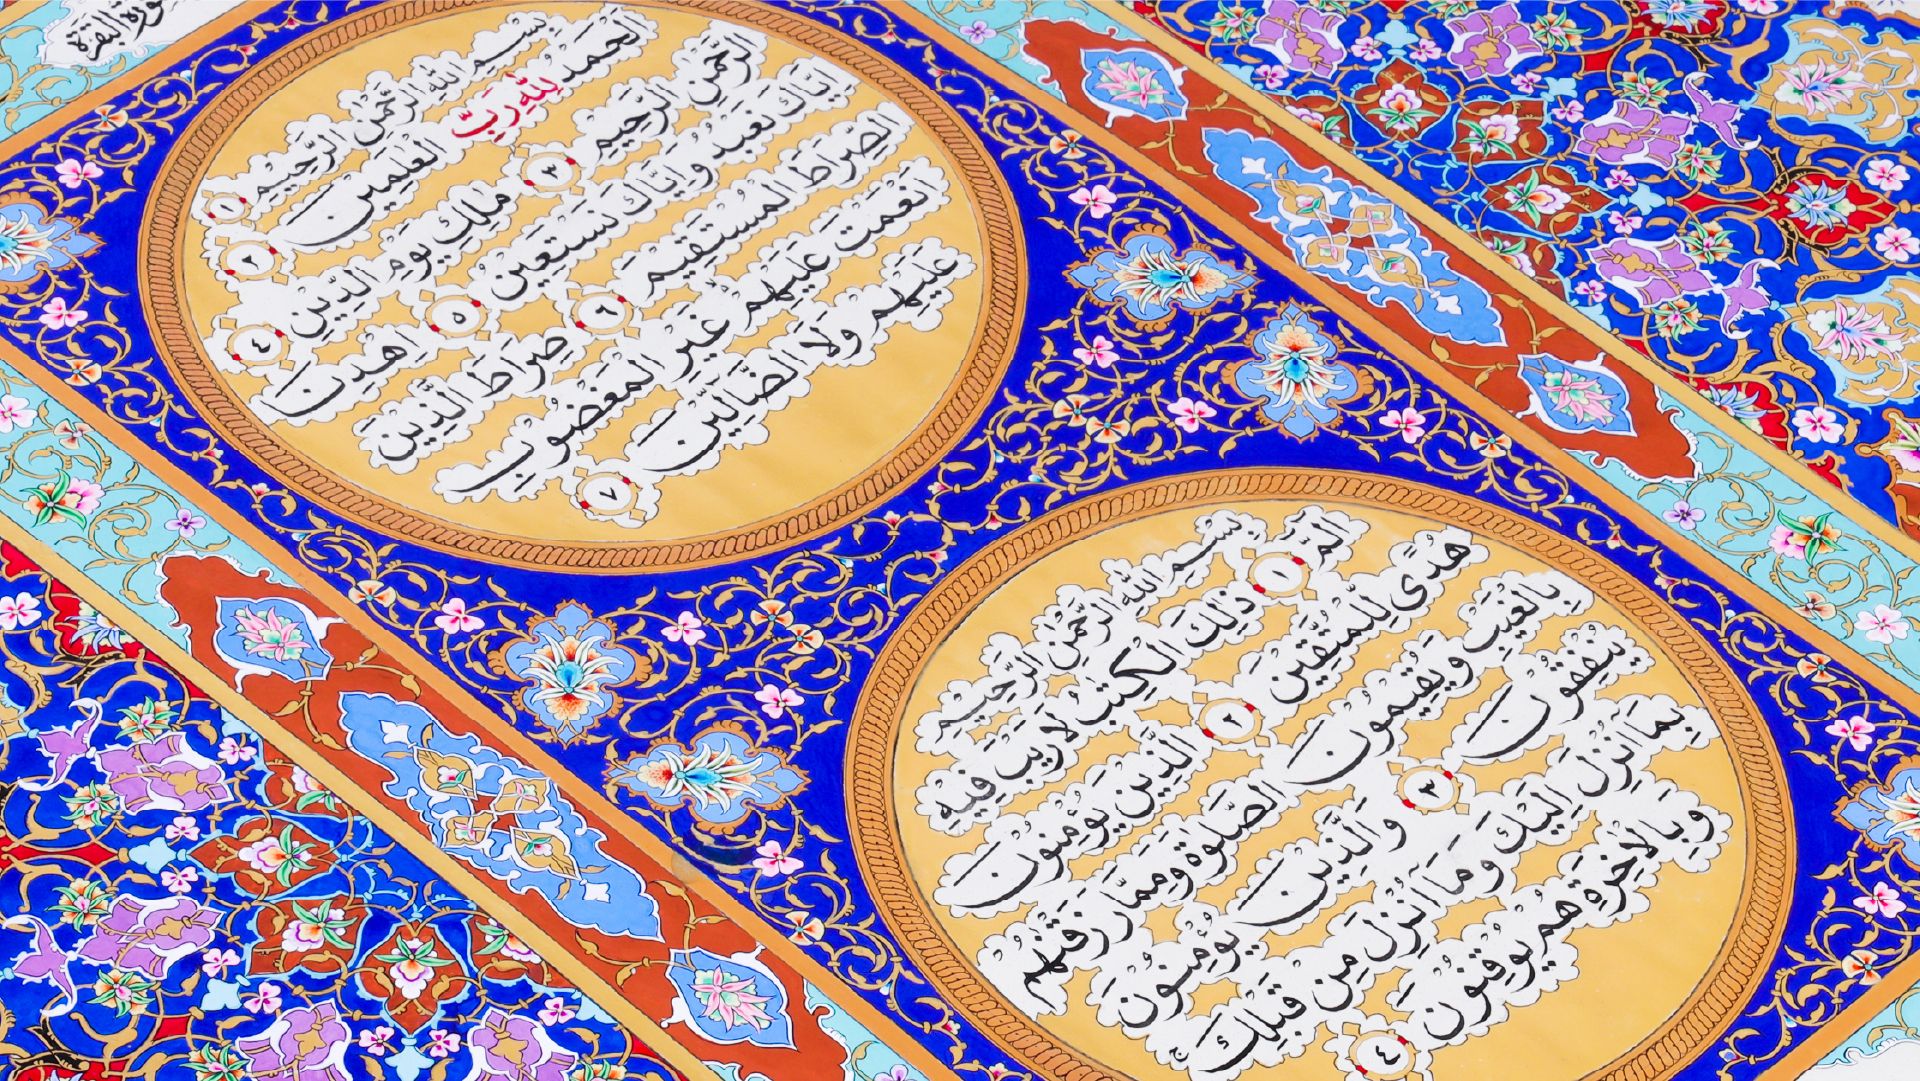 سورة البقرة
بِسْمِ اللهِ الرَّحْمٰنِ الرَّحِيْمِ ١
اَلْحَمْدُ لِلّٰهِ رَبِّ الْعٰلَمِيْنَ ٢
الرَّحْمٰنِ الرَّحِيْمِ ٣ مٰلِكِ يَوْمِ الدِّيْنِ ٤
اِيَّاكَ نَعْبُدُ وَاِيَّاكَ نَسْتَعِيْنُ ٥ اِهْدِنَا
الصِّرَاطَ الْمُسْتَقِيْمَ ٦ صِرَاطَ الَّذِيْنَ
اَنْعَمْتَ عَلَيْهِمْ غَيْرِ الْمَغْضُوْبِ
عَلَيْهِمْ وَلَا الضَّالِّيْنَ ٧
بِسْمِ اللهِ الرَّحْمٰنِ الرَّحِيْمِ
الٓمّٓ ١ ذٰلِكَ الْكِتٰبُ لَارَيْبَ فِيْهِ
هُدًى لِّلْمُتَّقِيْنَ ٢ الَّذِيْنَ يُؤْمِنُوْنَ
بِالْغَيْبِ وَيُقِيْمُوْنَ الصَّلٰوةَ وَمِمَّا رَزَقْنٰهُمْ
يُنْفِقُوْنَ ٣ وَالَّذِيْنَ يُؤْمِنُوْنَ
بِمَا اُنْزِلَ اِلَيْكَ وَمَا اُنْزِلَ مِنْ قَبْلِكَ
وَبِالْاٰخِرَةِ هُمْ يُوْقِنُوْنَ ٤